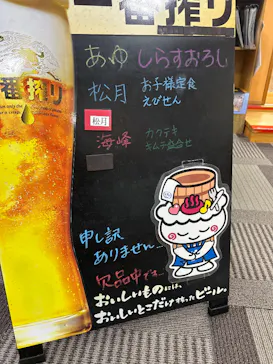 一番搾り
一番搾り
あゆ しらすおろし
松月 お子様定食
えびせん
松月
海峰 カクテキ
キムチ盛合せ
申し訳
ありません…
欠品中です…
おいしいものには、
おいしいとこだけ搾ったビール。